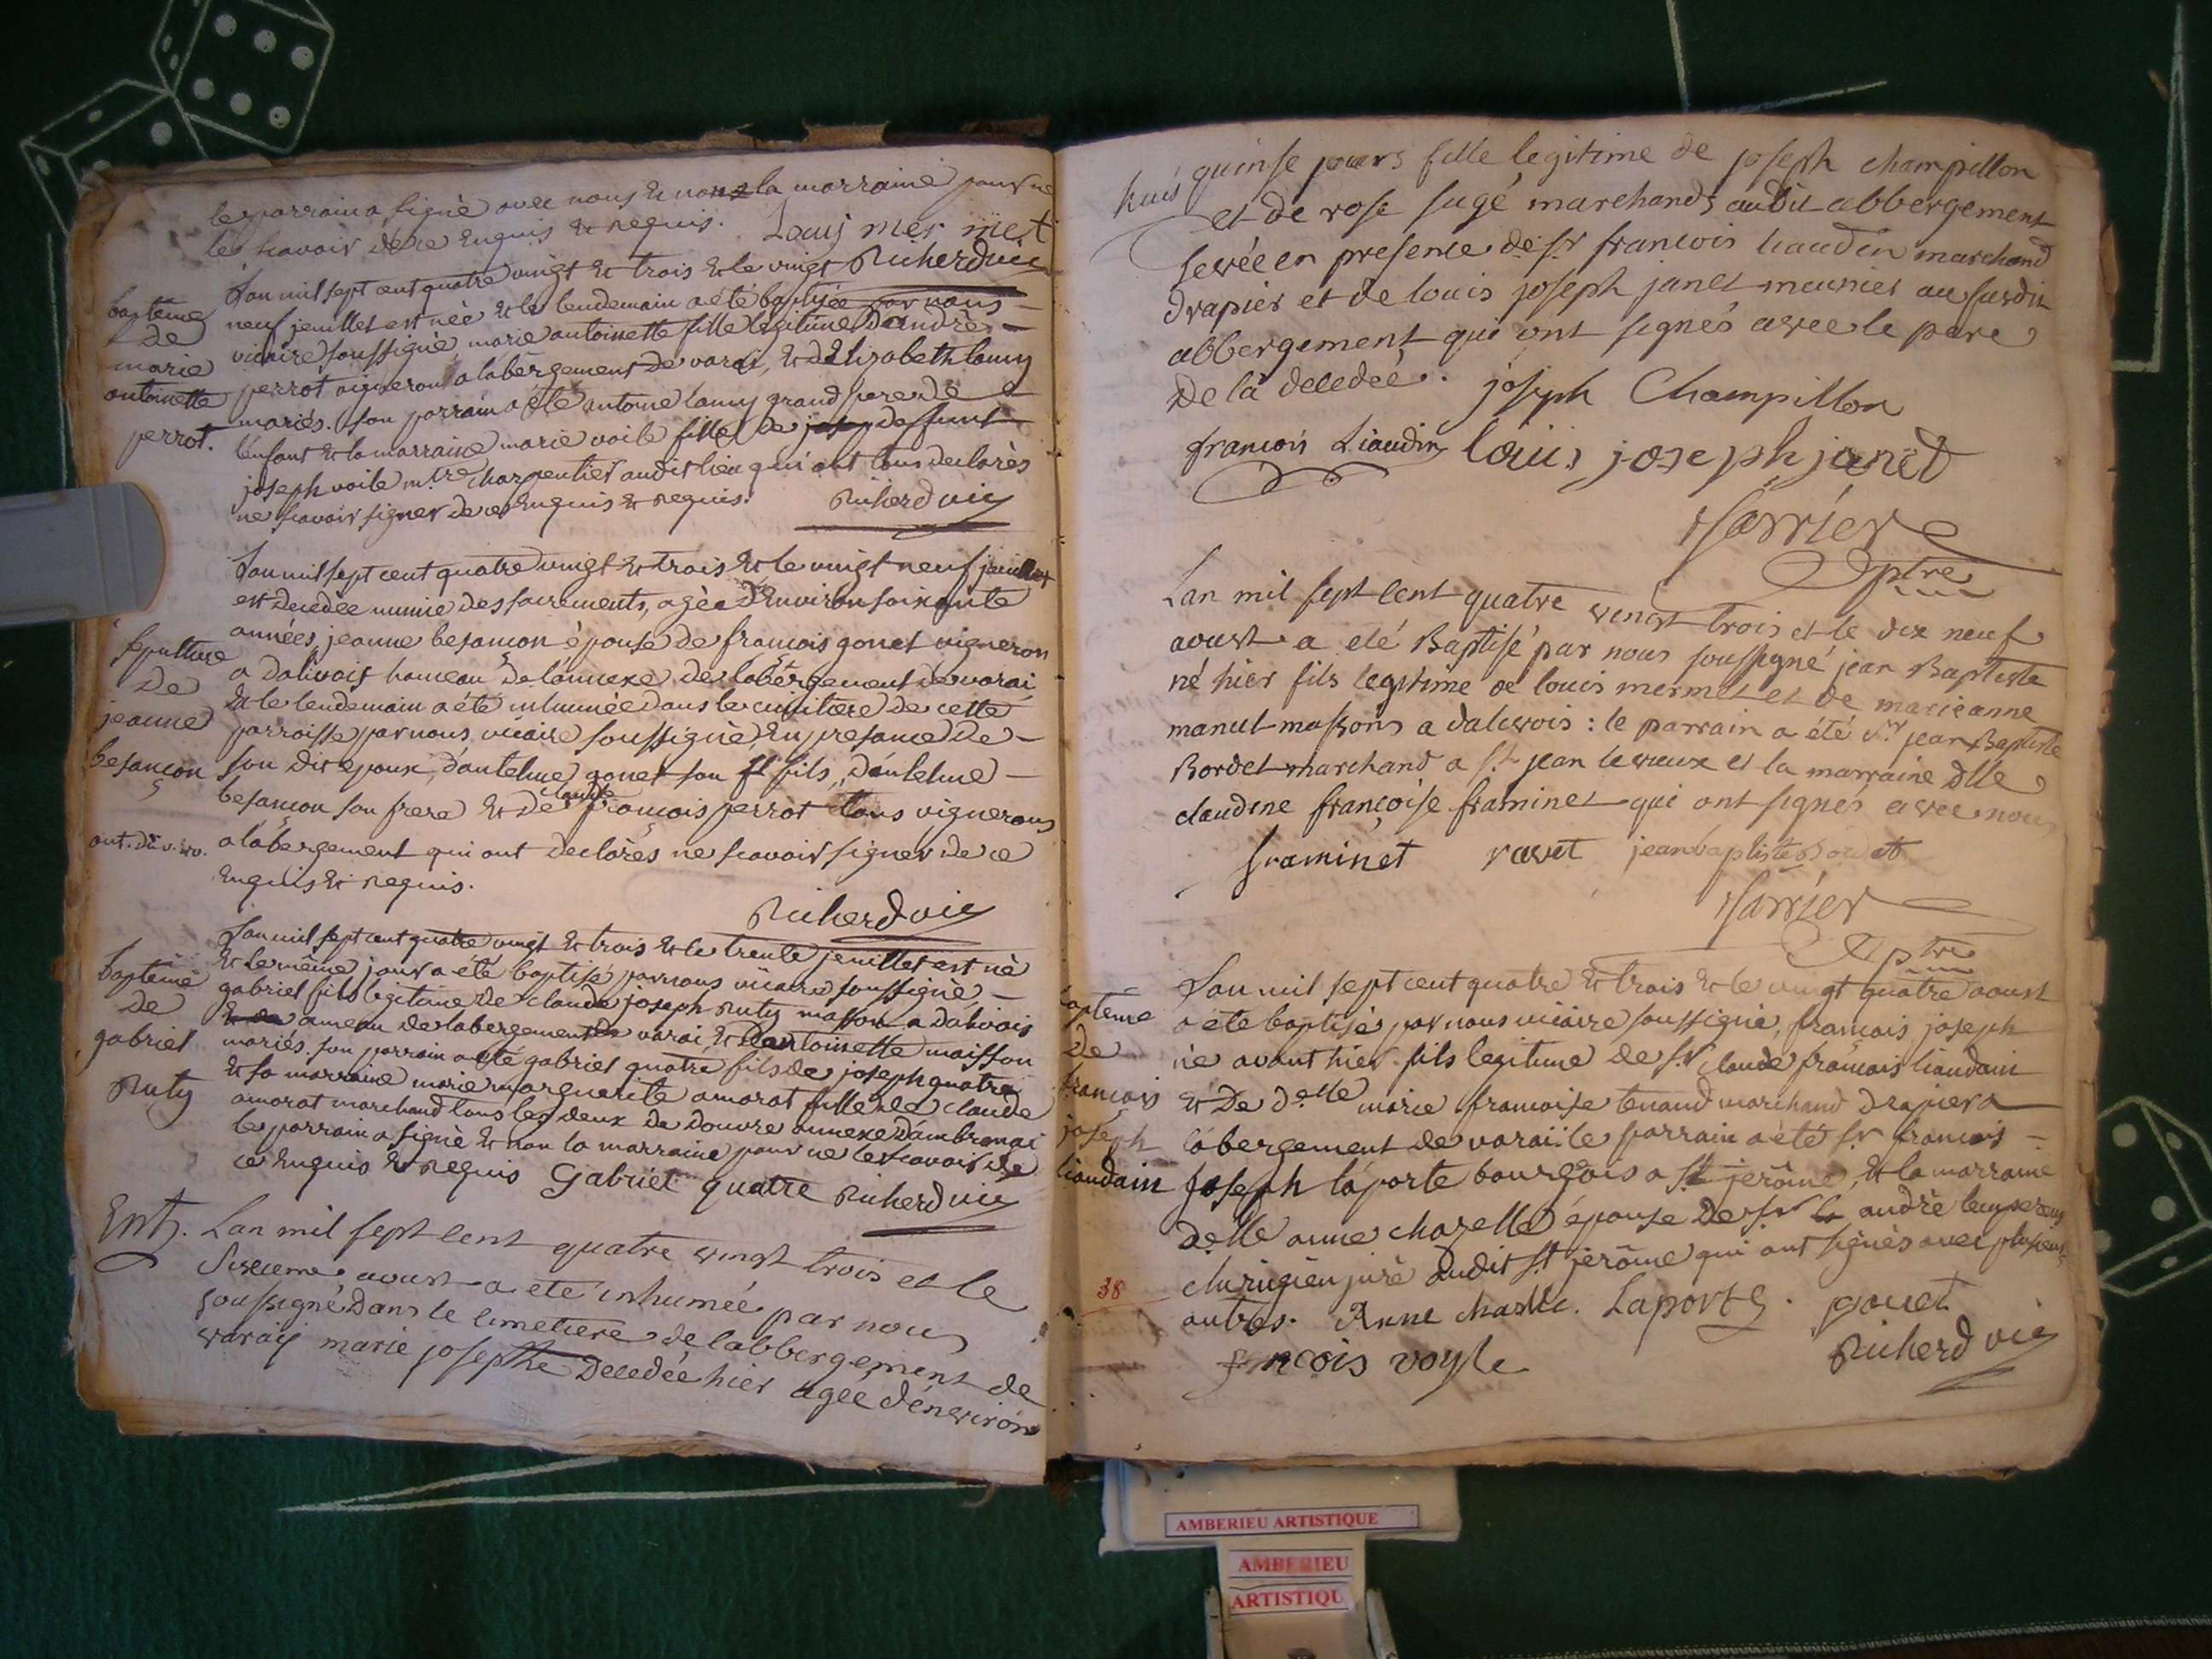 le parrain a signé avec nous et non la marraine pour ne
le scavoir de ce enquis et requis. Louis mermet
Richerd vic
baptême
de
marie
antoinette
perrot.
Lan mil sept cent quatre vingt et trois et le vingt
neuf jeuillet est née et le lendemain a été baptisée par nous
vicaire soussigné marie antoinette fille legitime d'andré
perrot vigneron a labergement de varai, et d'Elizabeth lamy
mariés. son parrain a été antoine lamy grand pere de
l'enfant et la marraine marie voile fille de deffunt
joseph voile mtre charpentier audit lieu qui ont tous declarès
ne scavoir signer de ce enquis et requis. Richerd vic
Sepulture
de
jeanne
besançon
Lan mil sept cent quatre vingt et trois et le vingt neuf jeuillet
est decedée munie des sacrements, agée d'environ soixante
années, jeanne besançon épouse de francois gonet vigneron
a dalivois hameau de l'annexe de labergement de varai
et le lendemain a été inhumée dans le cimitiere de cette
parroisse par nous vicaire soussigné, en presance de
son dit epoux, d'antelme gonet son fils, d'antelme
besançon son frere et de claude françois perrot tous vignerons
a labergement qui ont declarès ne scavoir signer de ce
enquis et requis.
Richerd vic
baptême
de
gabriel
Ruty
Lan mil sept cent quatre vingt et trois et le trente jeuillet est né
et le même jour a été baptisé par nous vicaire soussigné
gabriel fils legitime de claude joseph Ruty masson a dalivois
ameau de labergement de varai, et d'antoinette maisson
mariés. son parrain a été gabriel quatre fils de joseph quatre
et sa marraine marie marguerite amorat fille de claude
amorat marchand tous les deux de douvre annexe d'ambronai
le parrain a signé et non la marraine pour ne le scavoir de
ce enquis et requis Gabriel quatre Richerd vic
Ent. Lan mil sept cent quatre vingt trois et le
sixieme aoust a eté inhumée par nous
soussigné dans le cimetiere de labbergement de
varay marie josephte decedée hier agée d'environ
huis quinse jours fille legitime de joseph champillon
et de rose sugé marchands audit abbergement
en presence de sr francois liaudin marchand
drapier et de louis joseph janet meunier au susdit
abbergement qui ont signés avec le pere
de la decedée. joseph Champillon
francois Liaudin louis joseph janet
ptre
Lan mil sept cent quatre vingt trois et le dix neuf
aoust a eté Baptisé par nous soussigné jean Baptiste
né hier fils legitime de louis mermet et de marieanne
manut massons a dalivois : le parrain a été sr jean Baptiste
Bordet marchand a st jean le vieux et la marraine dlle
claudine françoise framinet qui ont signés avec nous
framinet ravet jeanbaptiste Bordet
ptre
bapteme
de
francois
joseph
liaudain
Lan mil sept cent quatre et trois et le vingt quatre aoust
a été baptisé par nous vicaire soussigné, francois joseph
né avant hier fils legitime de sr claude francois liaudain
et de delle marie francoise tenand marchand drapier a
labergement de varai: le parrain a été sr francois
joseph laporte bourgois a st jerôme, et la marraine
delle anne chazelle épouse de sr andré
chirugien juré audit st jerôme qui ont signés avec plusieurs
autres. Anne chaselle. Laporte. gonet
francois voyle Richerd vic
38
AMBERIEU ARTISTIQUE
AMBERIEU
ARTISTIQU